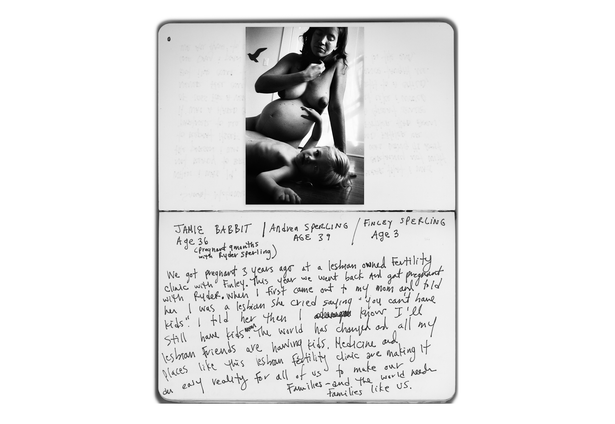 JAMIE BABBIT / Andrea SPERLING / FINLEY SPERLING
Age 36 AGE 39 Age 3
(pregnant 9 months
with Ryder Sperling)
We got pregnant 3 years ago at a lesbian owned Fertility
clinic with Finley. This year we went back and got pregnant
with Ryder. When I first came out to my mom and told
her I was a lesbian she cried saying "you can't have
kids". I told her then I know I'll
still have kids. The world has changed and all my
lesbian friends are having kids. Medicine and
places like this lesbian fertility clinic are making it
an easy reality for all of us to make our
Families - and the world needs
families like us.